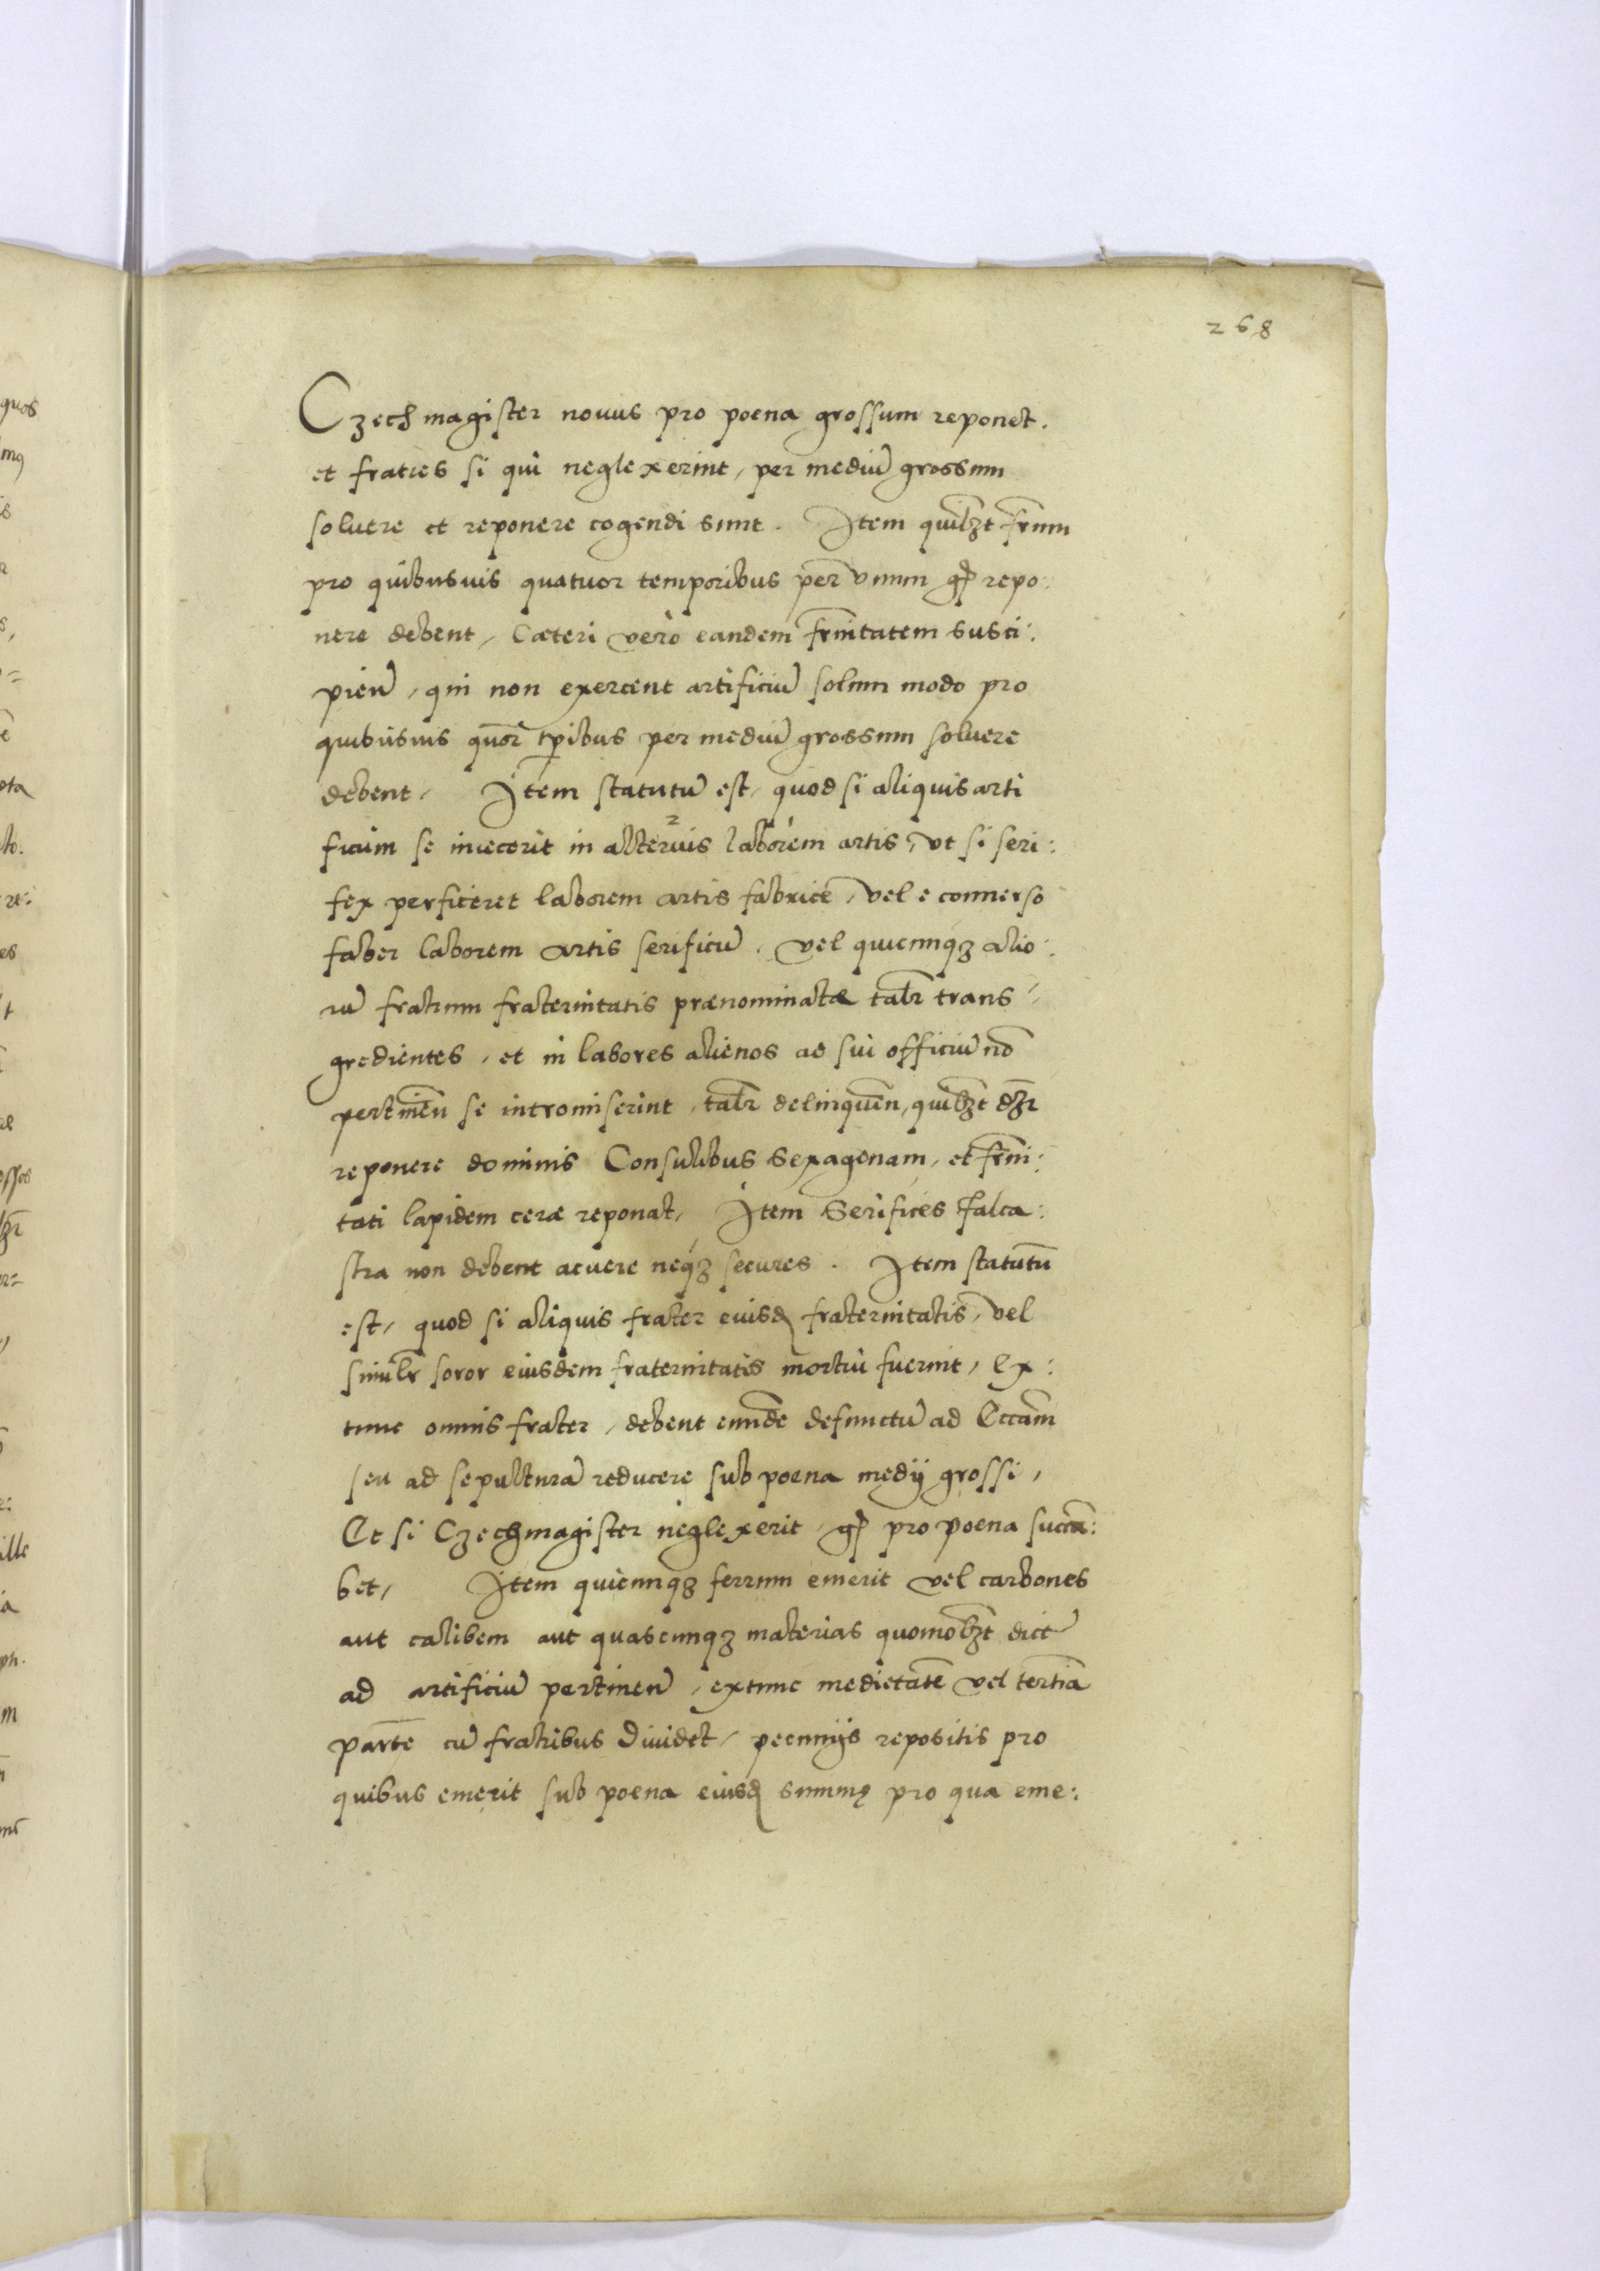 268
Czechmagister novus pro poena grossum reponet.
et fratres si qui neglexerint, per mediũ grossum
soluere et reponere cogendi sunt. Item quilbʒt fr̃um
pro quibusuis quatuor temporibus per vnum gͦ repo:
nere debent, Cæteri vero eandem fr̃nitatem susci:
pieñ, qui non exercent artificiũ solum modo pro
quibusuis quõr tp̃ibus per mediũ grossum soluere
debent, Item statutũ est, quod si aliquis arti
ficum se iniecerit in alterius laborem artis, vt si seri:
fex perficeret laborem artis fabricẽ, vel e conuerso
faber laborem artis serificũ, vel quicunqʒ alio:
rũ fratrum fraternitatis prænominatæ tabr̃ trans
gredientes, et in labores alienos ad sui officiũ nõ
pertineñ se intromiserint, tabr̃ delinqueñ, quilbʒt
reponere dominis Consulibus sexagenam, et fr̃ni:
tati lapidem ceræ reponat, Item Serifices falca:
stra non debent acuere neqʒ secures. Item statutũ
est, quod si aliquis frater eiusd fraternitatis, vel
similr̃ soror eiusdem fraternitatis mortui fuerint, Ex:
tunc omnis frater, debent eundẽ defunctũ ad Eccãm
seu ad sepulturã reducere sub poena medij grossi,
Et si Czechmagister neglexerit gͦ pro poena succũ:
bet, Item quicunqʒ ferrum emerit vel carbones
aut calibem aut quascunqʒ materias quomolbʒt dict̃
ad artificiũ pertineñ, extunc medietatẽ vel tertiã
partẽ cũ fratribus diuidet, pecunijs repositis pro
quibus emerit sub poena eiusd summę pro qua eme: